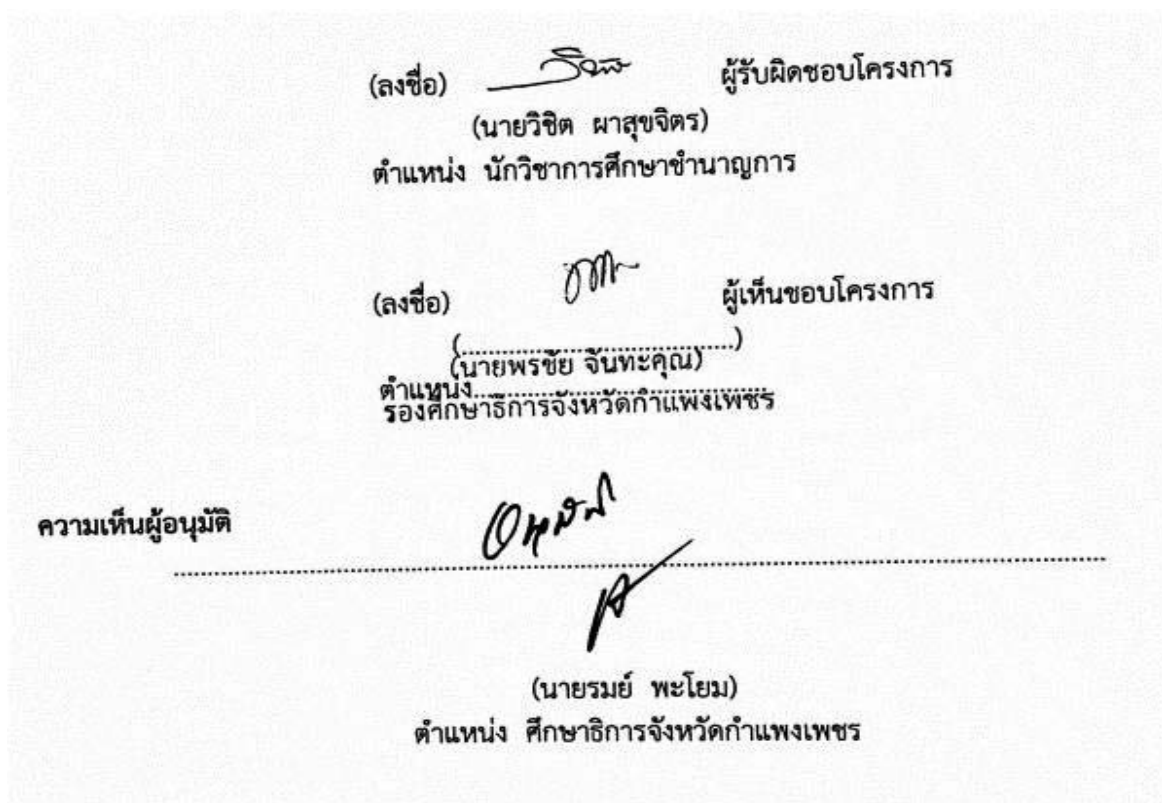 (ลงชื่อ) ผู้รับผิดชอบโครงการ
(นายวิชิต ผาสุขจิตร)
ตำแหน่ง นักวิชาการศึกษาชำนาญการ
(ลงชื่อ) ผู้เห็นชอบโครงการ
(..............................................)
(นายพรชัย จันทะคุณ)
ตำแหน่ง..................................................
รองศึกษาธิการจังหวัดกำแพงเพชร
อนุมัติ
ความเห็นผู้อนุมัติ
(นายรมย์ พะโยม)
ตำแหน่ง ศึกษาธิการจังหวัดกำแพงเพชร